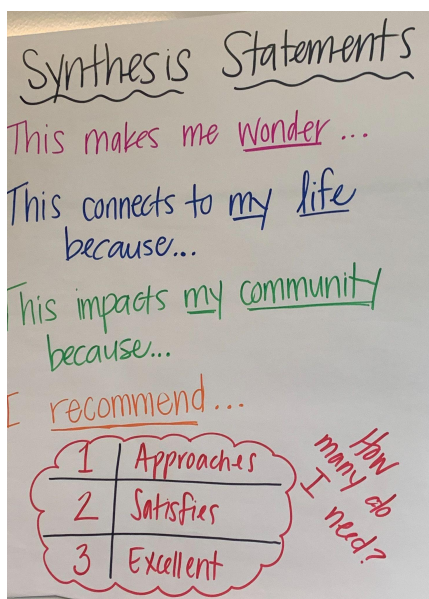 Synthesis Statements
This makes me wonder...
This connects to my life
because...
This impacts my community
because...
I recommend...
1 Approaches
2 Satisfies
3 Excellent
How
many do
I need?